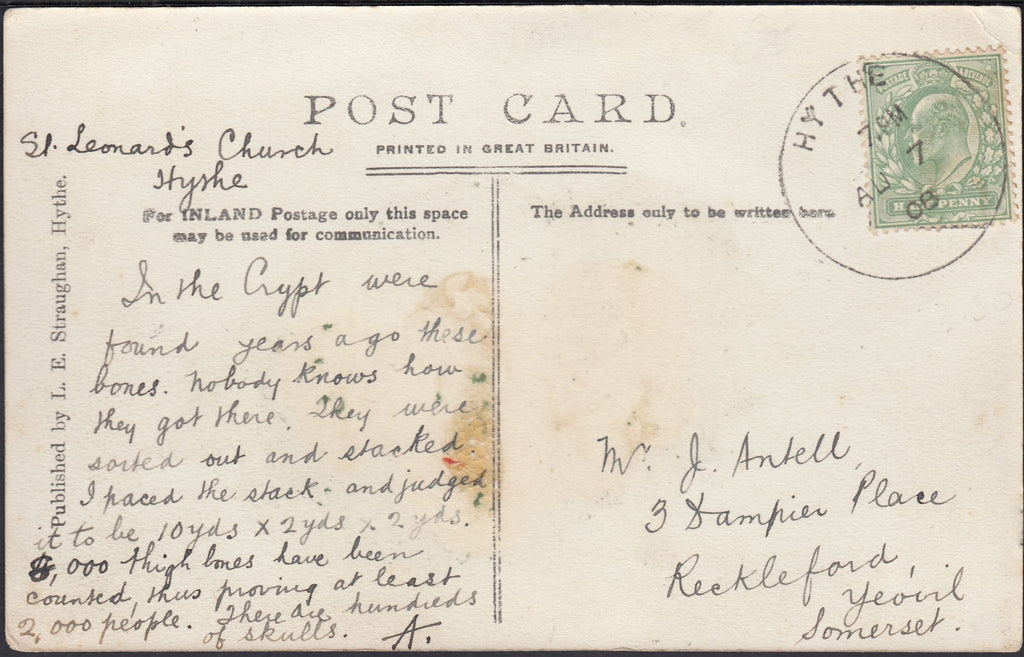 POST CARD.
PRINTED IN GREAT BRITAIN.
St. Leonard's Church
Hythe
For INLAND Postage only this space
may be used for communication.
The Address only to be written here
Published by L. E. Straughan, Hythe.
In the Crypt were
found years ago these
bones. Nobody knows how
they got there. They were
sorted out and stacked.
I paced the stack and judged
it to be 10 yds x 2 yds x 2 yds.
,000 thigh bones have been
counted, thus proving at least
2,000 people. There are hundreds
of skulls. A.
HYTHE
7 PM
7
AU
08
POSTAGE REVENUE
HALFPENNY
Mr. J. Antell,
3 Dampier Place
Reckleford,
Yeovil
Somerset.